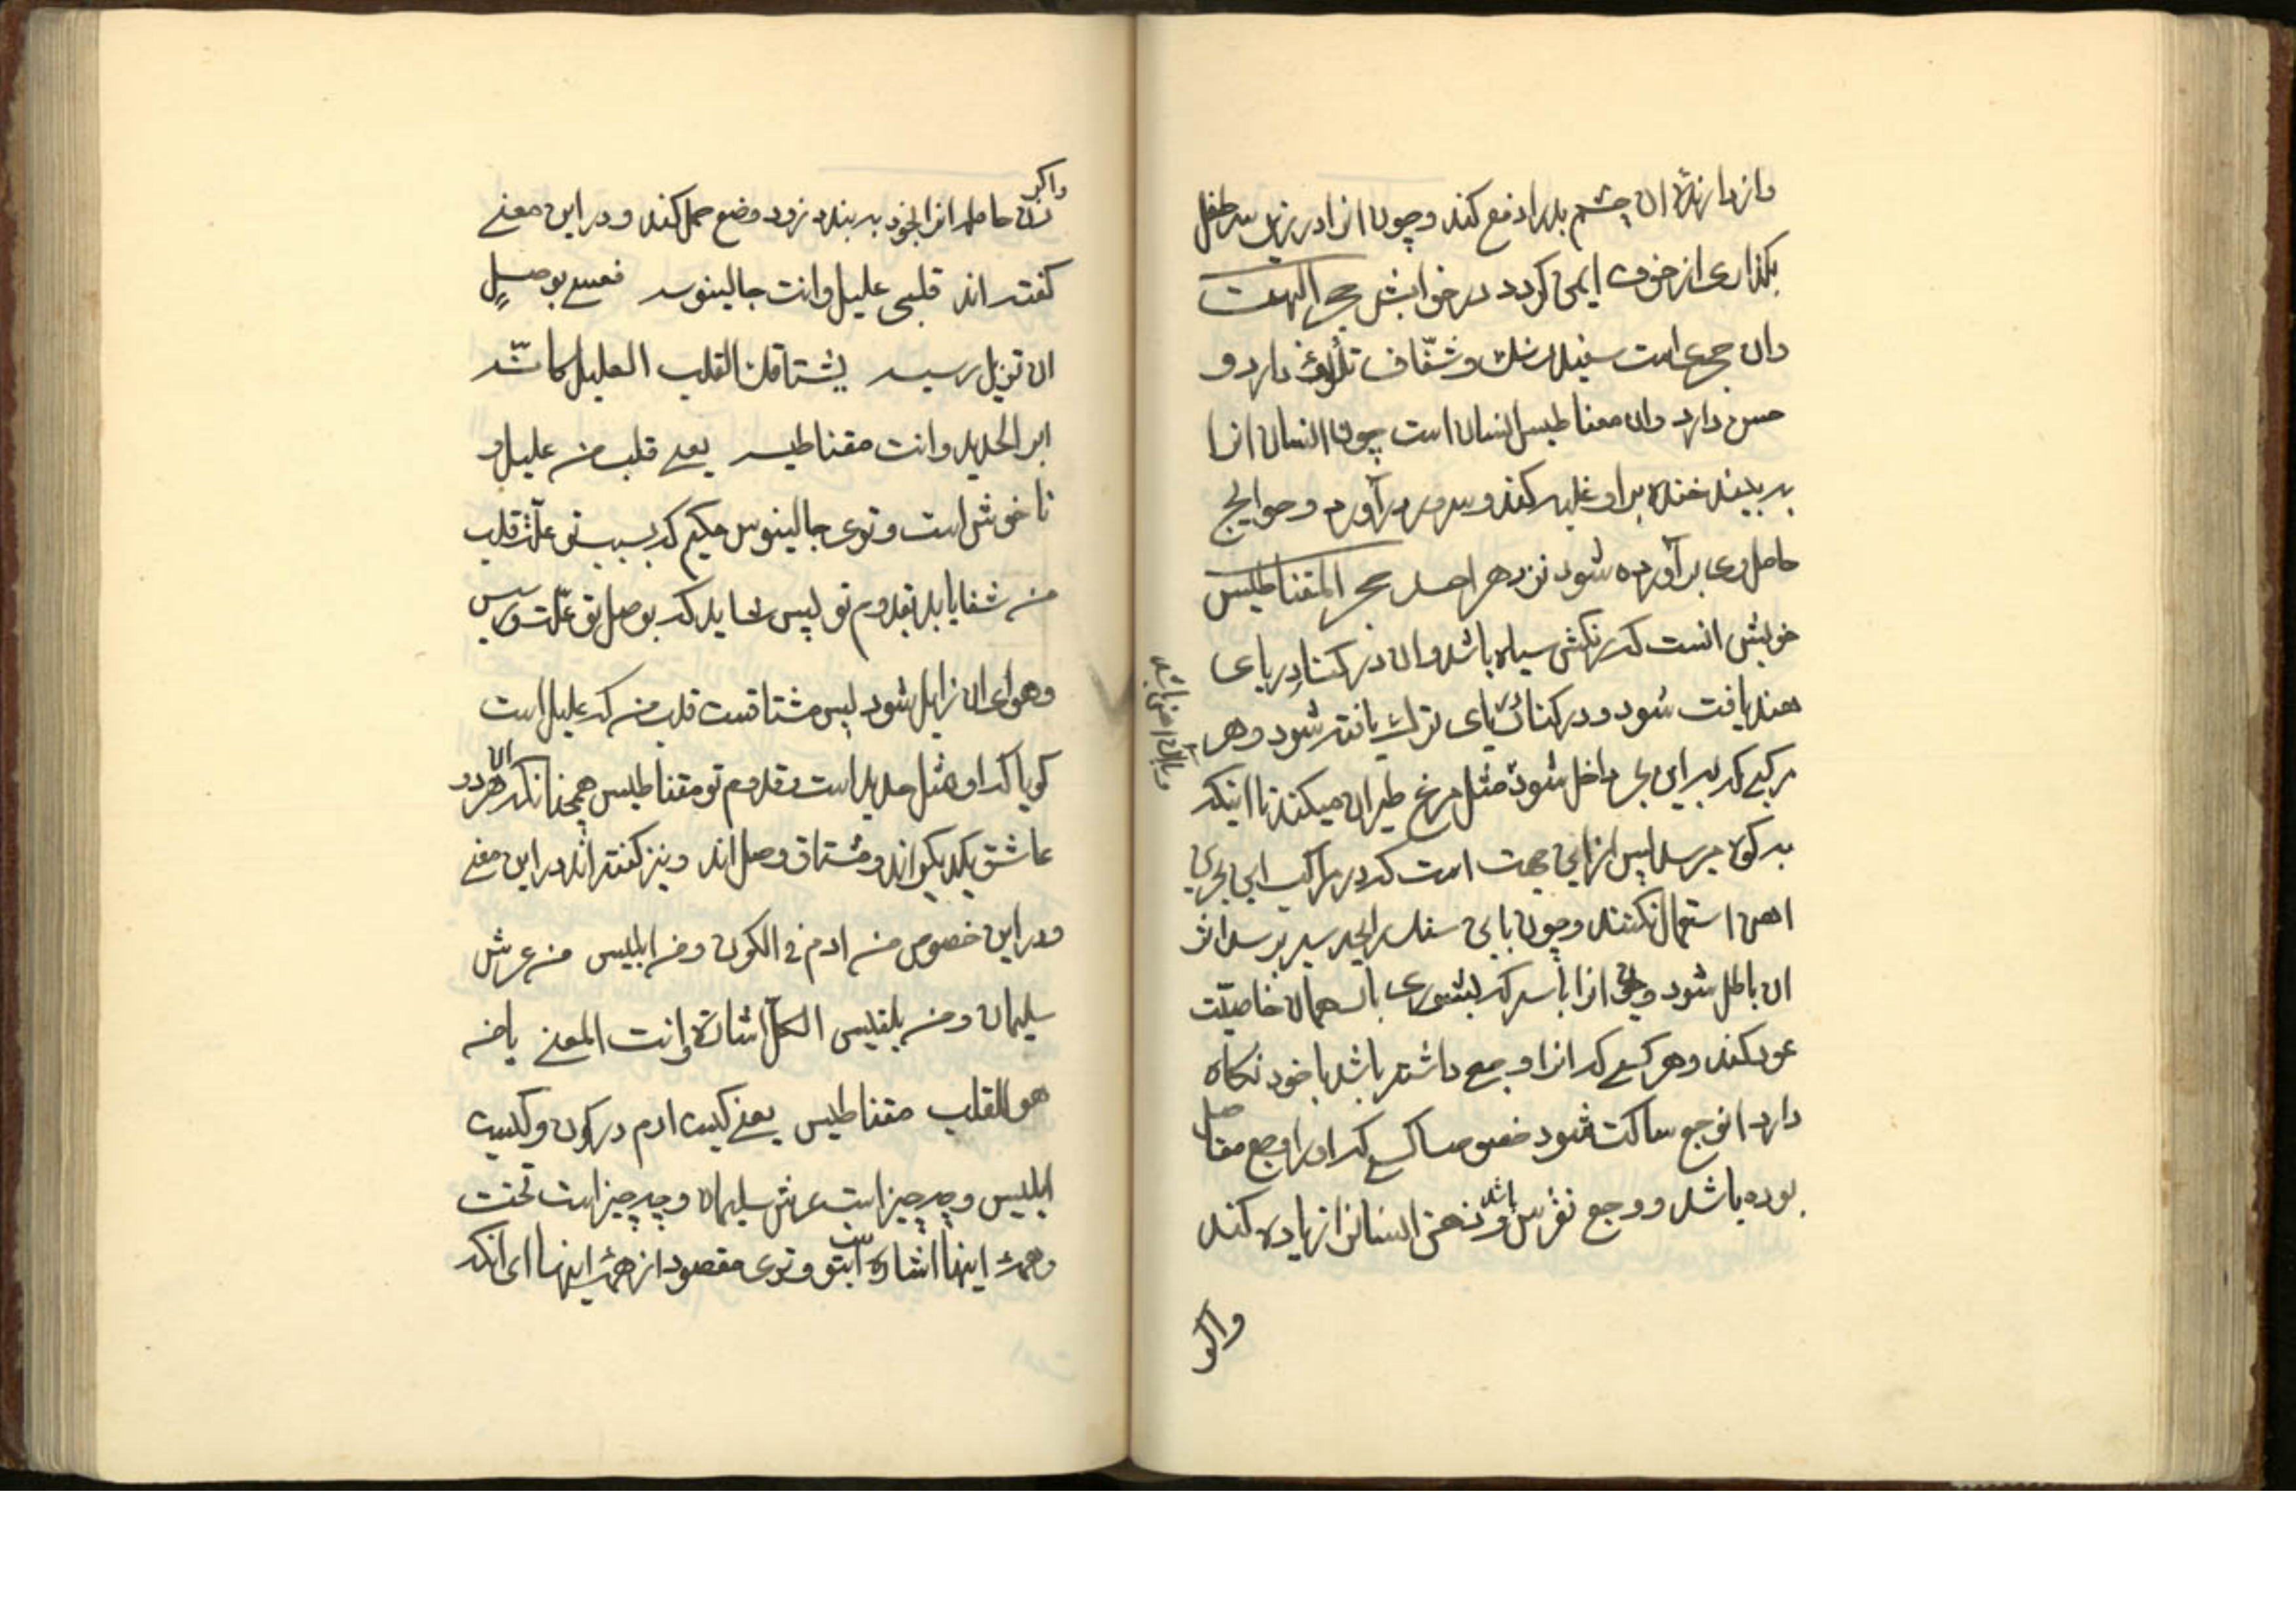 دازدارنده ان چشم بد را دفع کند و چون انرا در زیر سر طفل
بگذاری از خوف ایمن گردد در خوابش حجر البهت
وان حجری است سفید رنک و شفّاف تلألؤ دارد و
حسن دارد وان مغناطیس انسان است چون انسان انرا
به بیند خنده بر او غلبه کند و سرور در آورد و حوایج
حامل وی برآورده شود نزد هر احد حجر المقناطیس
خوبش انست که رنکش سیاه باشد وان در کنار دریای
هند یافت شود و در کنار دریای ترک یافته شود و هر
مرکبی که به این بحر داخل شود مثل مرغ طیران میکند تا اینکه
به کوه میرسد پس از این جهت است که در مراکب این بحر
اهن استعمال نکنند و چون باین سنک رایحه سیر برسد اثر
ان باطل شود و چون انرا با سرکه بشوری بان همان خاصیّت
عود کند و هر کسی که انرا وجعی داشته باشد با خود نکاه
دارد ان وجع ساکت شود خصوصا کسی که او را وجع مفاصل
بوده باشد و وجع نقرس باشد و ذهن انسان را زیاده کند
واکر
واکر
زن حامله انرا بخود به بندد زود وضع حمل کند و در این معنی
کفته اند قلبی علیل وانت جالینوسه فعسی بوصل
ان تزیل رسیسه یشتاقک القلب العلیل کانّه
ابر الحدید وانت مقناطیسه یعنی قلب من علیل و
ناخوش است و توی جالینوس حکیم که بسبب تو علّت قلب
من شفا یابد بقدوم تو پس شاید که بوصل تو علّت و رسیس
وهوای ان زایل شود پس مشتاقست قلب من که علیل است
کویا که او مثل حدید است و قدوم تو مقناطیس همچنانکه ان هر دو
عاشق یکدیکراند و مشتاق وصل اند و نیز کفته اند در این معنی
و در این خصوص من ادم فی الکون ومن ابلیس من عرش
سلیمان ومن بلقیس الکلّ اشارة وانت المعنی یا من
هو للقلب مقناطیس یعنی کیست ادم در کون و کیست
ابلیس و چه چیز است عرش سلیمان و چه چیز است تخت
وهمهٔ اینها اشاره است بتو و توی مقصود از همهٔ اینها ای انکه